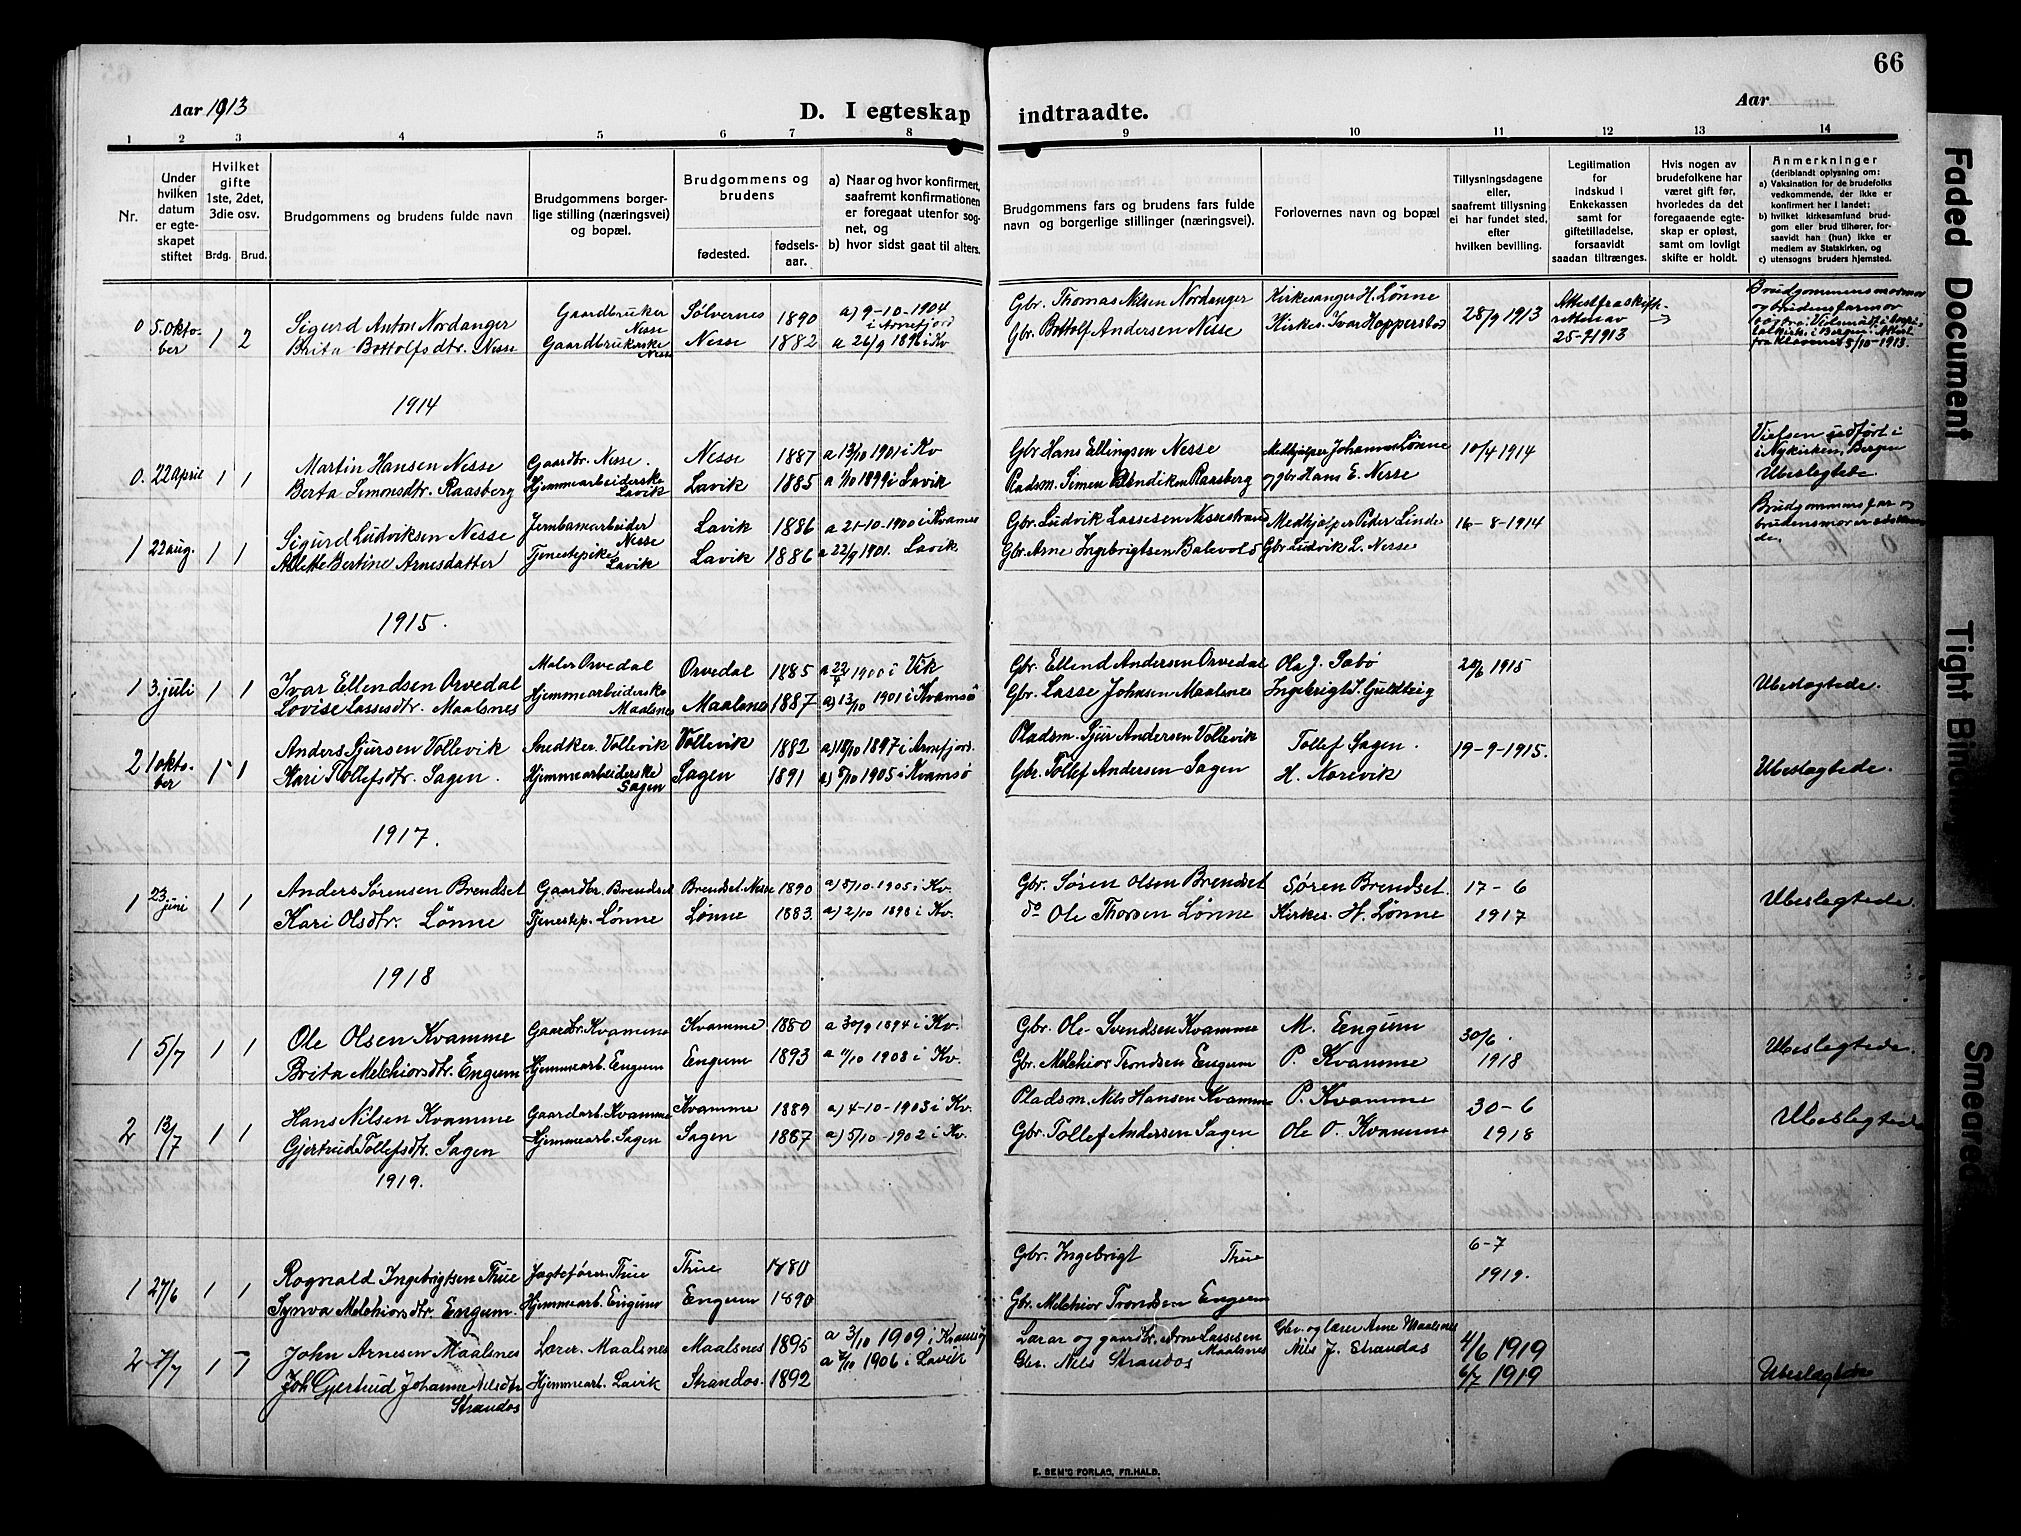 66
Aar 1913
D. I egteskap indtraadte.
Aar
1 2 3 4 5 6 7 8 9 10 11 12 13 14
Nr.
Under hvilken datum er egteskapet stiftet
Hvilket gifte 1ste, 2det, 3die osv.
Brdg. Brud.
Brudgommens og brudens fulde navn
Brudgommens borgerlige stilling (næringsvei) og bopæl.
Brudgommens og brudens
fødested.
fødselsaar.
a) Naar og hvor konfirmert, saafremt konfirmationen er foregaat utenfor sognet, og
b) hvor sidst gaat til alters.
Brudgommens fars og brudens fars fulde navn og borgerlige stillinger (næringsvei).
Forlovernes navn og bopæl
Tillysningsdagene eller, saafremt tillysning ei har fundet sted, efter hvilken bevilling.
Legitimation for indskud i Enkekassen samt for giftetilladelse, forsaavidt saadan tiltrænges.
Hvis nogen av brudefolkene har været gift før, hvorledes da det foregaaende egteskap er opløst, samt om lovligt skifte er holdt.
Anmerkninger (deriblandt oplysning om:
a) Vaksination for de brudefolks vedkommende, der ikke er konfirmert her i landet;
b) hvilket kirkesamfund brudgom eller brud tilhører, forsaavidt han (hun) ikke er medlem av Statskirken, og
c) utensogns bruders hjemsted.
0 5. oktober 1 2 Sigurd Anton Nordanger Gaardbruker Nesse Sølvernes 1890 a) 9-10-1904 i Arnefjord Gbr. Thomas Nilsen Nordanger Kirkesanger H. Lønne 28/9 1913 Attest fra skifteretten av 25-7-1913
Brita Bottolfsdtr. Nesse Gaardbrukerske Nesse Nesse 1882 a 26/9 1896 i Kv Gbr. Bottolf Andersen Nesse Kirkes. Ivar Hopperstad
1914
0. 22 april 1 1 Martin Hansen Nesse Gaardbr. Nesse. Nesse 1887 a 13/10 1901 i Kv Gbr Hans Ellingsen Nesse Medhjælper Johannes Lønne 10/4 1914 Vielsen udført i Nykirken, Bergen
Berta Simonsdtr. Raasberg Hjemmearbeiderske Lavik Lavik 1885 a 1/10 1899 i Lavik Pladsm. Simen Bendiksen Raasberg og gbr Hans E. Nesse Ubeslegtede
1 22 aug. 1 1 Sigurd Ludviksen Nesse Jernbanearbeider Nesse Lavik 1886 a 21-10-1900 i Kvamsø Gbr. Ludvik Lassesen Nessestrand Medhjælper Peder Linde 16-8-1914 Brudgommens far og brudens mor er søskende.
Alette Bertine Arnesdatter Tjenestepike Lavik Lavik 1886 a 22/9 1901. Lavik Gbr. Arne Ingebrigtsen Balevold Gbr Ludvik L. Nesse
1915.
1 3. juli 1 1 Ivar Ellendsen Orvedal Maler Orvedal Orvedal 1885 1900 i Vik Gbr. Ellend Andersen Orvedal Ola J. Sabø 20/6 1915
Lovise Lassesdtr. Maalsnes Hjemmearbeiderske Maalsnes Maalsnes 1887 a) 13/10 1901 i Kvamsø Gbr. Lasse Johnsen Maalsnes Ubeslegtede.
2 1 oktober 1 1 Anders Sjursen Vollevik Snedker. Vollevik Vollevik 1882 a) 18/10 1897 i Arnefjord. Pladsm. Sjur Andersen Vollevik Tollef Sagen. 19-9-1915.
Kari Tollefsdtr. Sagen. Hjemmearbeiderske Sagen Sagen 1891 a) 8/10 1905 i Kvamsø Gbr. Tollef Andersen Sagen H. Norevik Ubeslegtede.
1917.
1 23 juni 1 1 Anders Sørensen Brendset Gaardbr. Brendset Brendset. Nesse 1890 a) 8/10-1905 i Kv. Gbr. Søren Olsen Brendset Søren Brendset. 17-6
Kari Olsdtr. Lønne Tjenestep. Lønne Lønne 1883. a) 2/10 1898 i Kv. do Ole Thorsen Lønne Kirkes. H. Lønne 1917 Ubeslegtede.
1918
1 5/7 1 1 Ole Olsen Kvamme Gaardbr. Kvamme Kvamme 1880 a 30/9 1894 i Kv. Gbr. Ole Svendsen Kvamme M. Engum 30/6.
Brita Melchiorsdtr. Engum Hjemmearb. Engum Engum 1893 a 11/10 1908 i Kv. Gbr. Melchior Trondsen Engum P. Kvamme 1918 Ubeslegtede.
2 13/7 1 1 Hans Nilsen Kvamme Gaardarb. Kvamme Kvamme 1889 a) 4-10-1903 i Kv. Pladsm. Nils Hansen Kvamme P. Kvamme 30-6
Gjertrud Tollefsdtr. Sagen Hjemmearb. Sagen Sagen 1887 a) 5/10-1902 i Kv. Gbr. Tollef Andersen Sagen Ole O. Kvamme 1918 Ubeslegtede
1919.
1 27/6 1 1 Rognald Ingebrigtsen Thue Jagtefører Thue Thue 1880 Gbr. Ingebrigt Thue 6-7
Synva Melchiorsdtr. Engum. Hjemmearb. Engum Engum 1890 Gbr. Melchior Trondsen Engum 1919.
2 7/7 1 1 John Arnesen Maalsnes Lærer. Maalsnes Maalsnes 1895 a 3/10 1909 i Kvamsø Lærar og gaardbr. Arne Lassesen Maalsnes Gbr. og lærer Arne Maalsnes 4/6 1919
Gjertrud Johanne Nilsdtr Strandos Hjemmearb. Lavik Strandos. 1892 a 7/10 1906 i Lavik Gbr. Nils Strandos Nils J. Strandos 6/7 1919 Ubeslegtede
E. SEM'S FORLAG, FR.HALD.
Faded Document
Tight Binding
Smeared